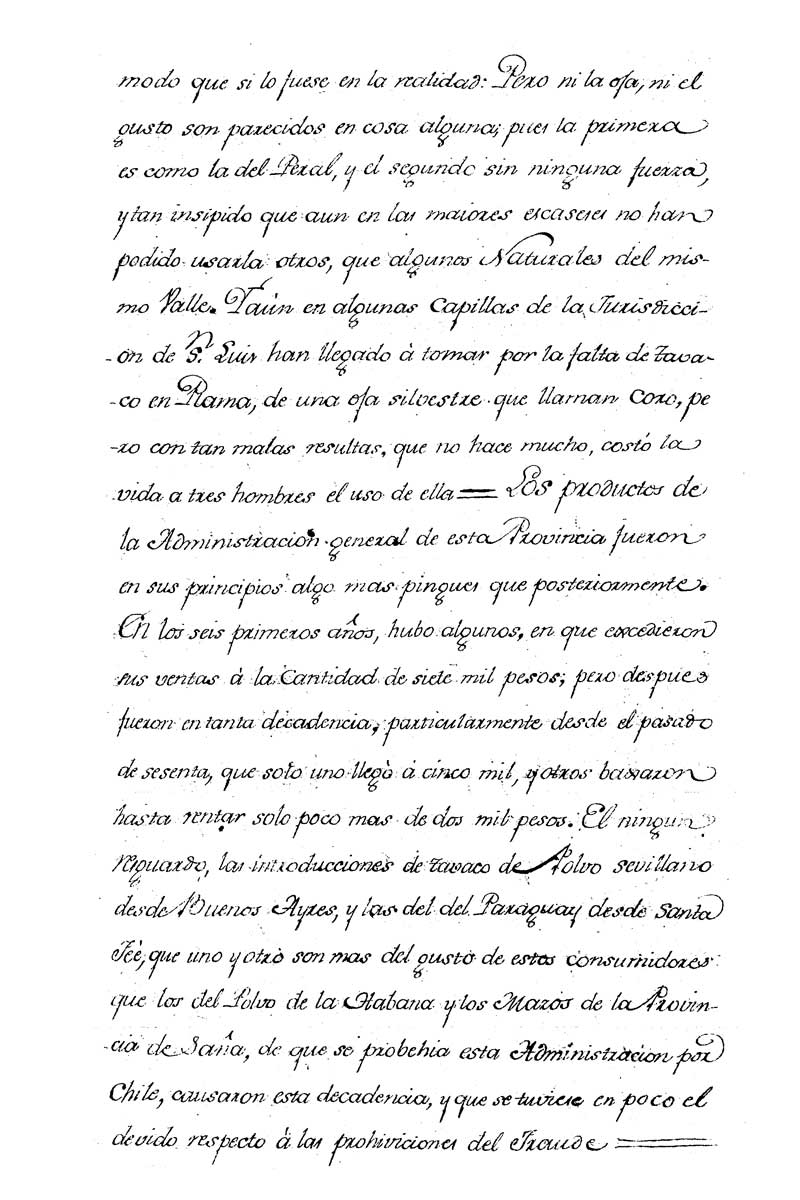 modo que si lo fuese en la realidad: Pero ni la oja, ni el
gusto son parecidos en cosa alguna; pues la primera
es como la del Peral, y el segundo sin ninguna fuerza,
y tan insipido que aun en las maiores escaseses no han
podido usarla otros, que algunos Naturales del mis-
mo Valle. Y aún en algunas Capillas de la Jurisdicci-
-on de Sn. Luis han llegado à tomar por la falta de tava-
-co en Rama, de una oja silvestre que llaman Coro, pe
-ro con tan malas resultas, que no hace mucho, costó la
vida a tres hombres el uso de ella = Los productos de
la Administracion general de esta Provincia fueron
en sus principios algo mas pingues que posteriormente.
En los seis primeros años, hubo algunos, en que excedieron
sus ventas à la Cantidad de siete mil pesos; pero despues
fueron en tanta decadencia, particularmente desde el pasado
de sesenta, que solo uno llegò à cinco mil, y otros baxaron
hasta rentar solo poco mas de dos mil pesos. El ningun
resguardo, las introducciones de tavaco de Polvo sevillano
desde Buenos Ayres, y las del del Paraguay desde Santa
Feè, que uno y otro son mas del gusto de estos consumidores
que los del Polvo de la Habana y los Mazos de la Provin-
-cia de Saña, de que se probehia esta Administracion por
Chile, causaron esta decadencia, y que se tuviese en poco el
devido respecto à las prohiviciones del Fraude =